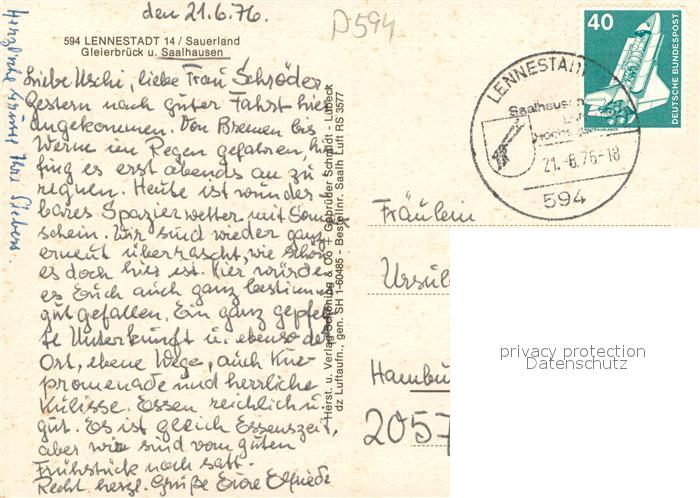 den 21.6.76.
D594
594 LENNESTADT 14 / Sauerland
Gleierbrück u. Saalhausen
Liebe Uschi, liebe Frau Schröder
Gestern nach guter Fahrt hier
angekommen. Von Bremen bis
Werne im Regen gefahren, hier
fing es erst abends an zu
regnen. Heute ist wunder-
bares Spazierwetter mit Sonn
schein. Wir sind wieder ganz
erneut überrascht, wie schön
es doch hier ist. Hier würde
es Euch auch ganz bestimm
gut gefallen. Ein ganz gepfle
te Unterkunft u. ebenso der
Ort, ebene Wege, auch Kur-
promenade und herrliche
Kulisse. Essen reichlich u.
gut. Es ist gleich Essenszeit,
aber wir sind vom guten
Frühstück noch satt.
Recht herzl. Grüße Eure Elfriede
Herzliche Grüsse Ihre Siebens.
Herst. u. Verlag Schöning & Co + Gebrüder Schmidt - Lübeck
dz Luftaufn., gen. SH 1-60485 - Bestellnr. Saalh Luft RS 3577
40
DEUTSCHE BUNDESPOST
LENNESTADT
Saalhausen
21.-6.76-18
594
Fräulein
Ursul
Hambu
2057
privacy protection
Datenschutz